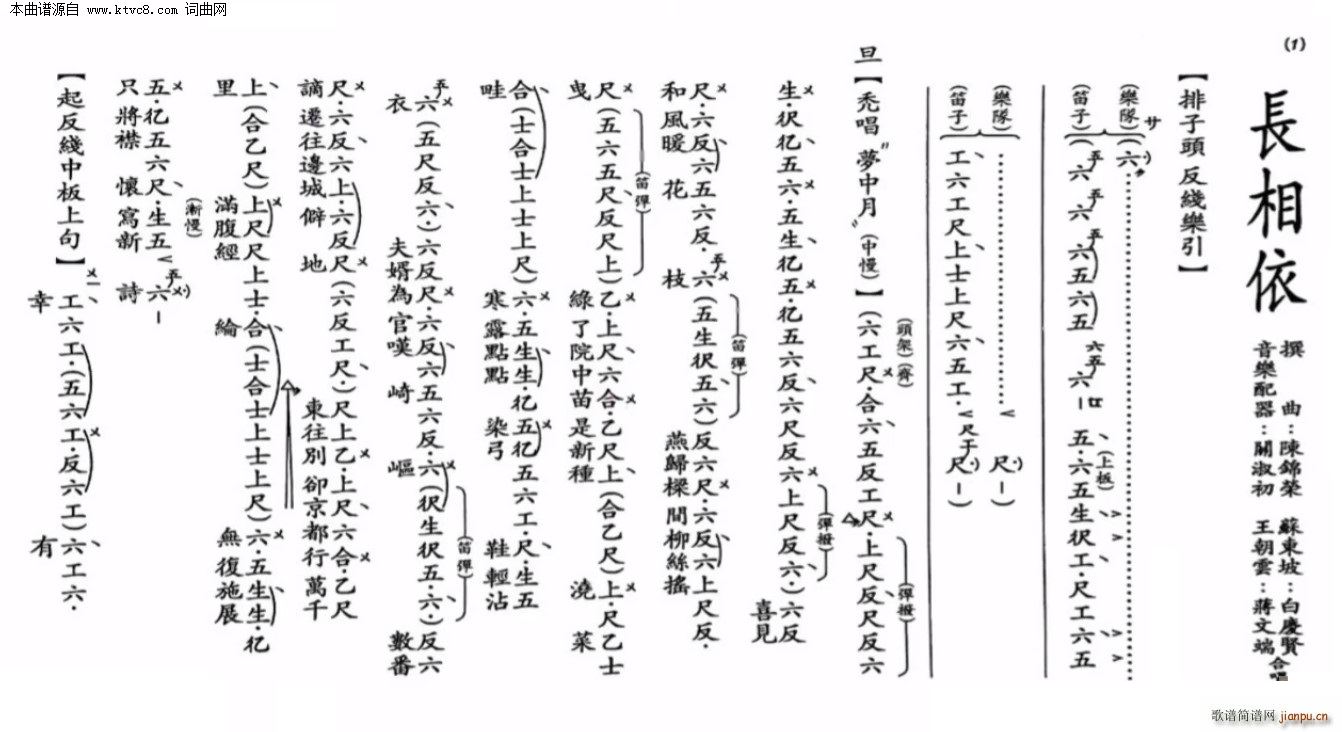 本曲谱源自 www.ktvc8.com 词曲网
(1)
長相依
撰 曲：陳錦榮 蘇東坡：白慶賢
音樂配器：關淑初 王朝雲：蔣文端 合唱
【排子頭 反綫樂引】
(樂隊) サ 六
(笛子) (六 六 六五六五 六 五·六五生伬工·尺工六五
(上板)
(樂隊) 尺 —)
(笛子) 工六工尺上士上尺六五工· 尺 —)
旦【禿唱 "夢中月" (中慢)】(六工尺·合六五反工尺·上尺反尺反六
(頭架)(齊) (彈撥)
生·伬亿五六·五生亿五·亿五六反六尺反六上尺反六·)六反
(彈撥)
喜見
尺·六反六五六反·六(五生伬五六)反六尺·六反六上尺反·
(笛彈)
和風暖 花 枝 燕歸樑間柳絲搖
尺(五六五尺反尺上)乙·上尺六合·乙尺上(合乙尺)上·尺乙士
(笛彈)
曳 綠了院中苗是新種 澆 菜
合(士合士上士上尺)六·五生生·亿五亿五六工·尺·生五
畦 寒露點點 染弓 鞋輕沾
六(五尺反六·)六反尺·六反六五六反·六(伬生伬五六·)反六
(笛彈)
衣 夫婿為官嘆 崎 嶇 數番
尺·六反六上·六反尺(六反工尺·)尺上乙·上尺六合·乙尺
謫遷往邊城僻 地 東往別卻京都行萬千
上(合乙尺)上尺尺上士·合(士合士上士上尺)六·五生生·亿
里 滿腹經 綸 無復施展
五·亿五六尺·生五 六 —
(漸慢)
只將襟 懷寫新 詩
【起反綫中板上句】工六工·(五六工·反六工)六工六·
幸 有
歌谱简谱网 jianpu.cn